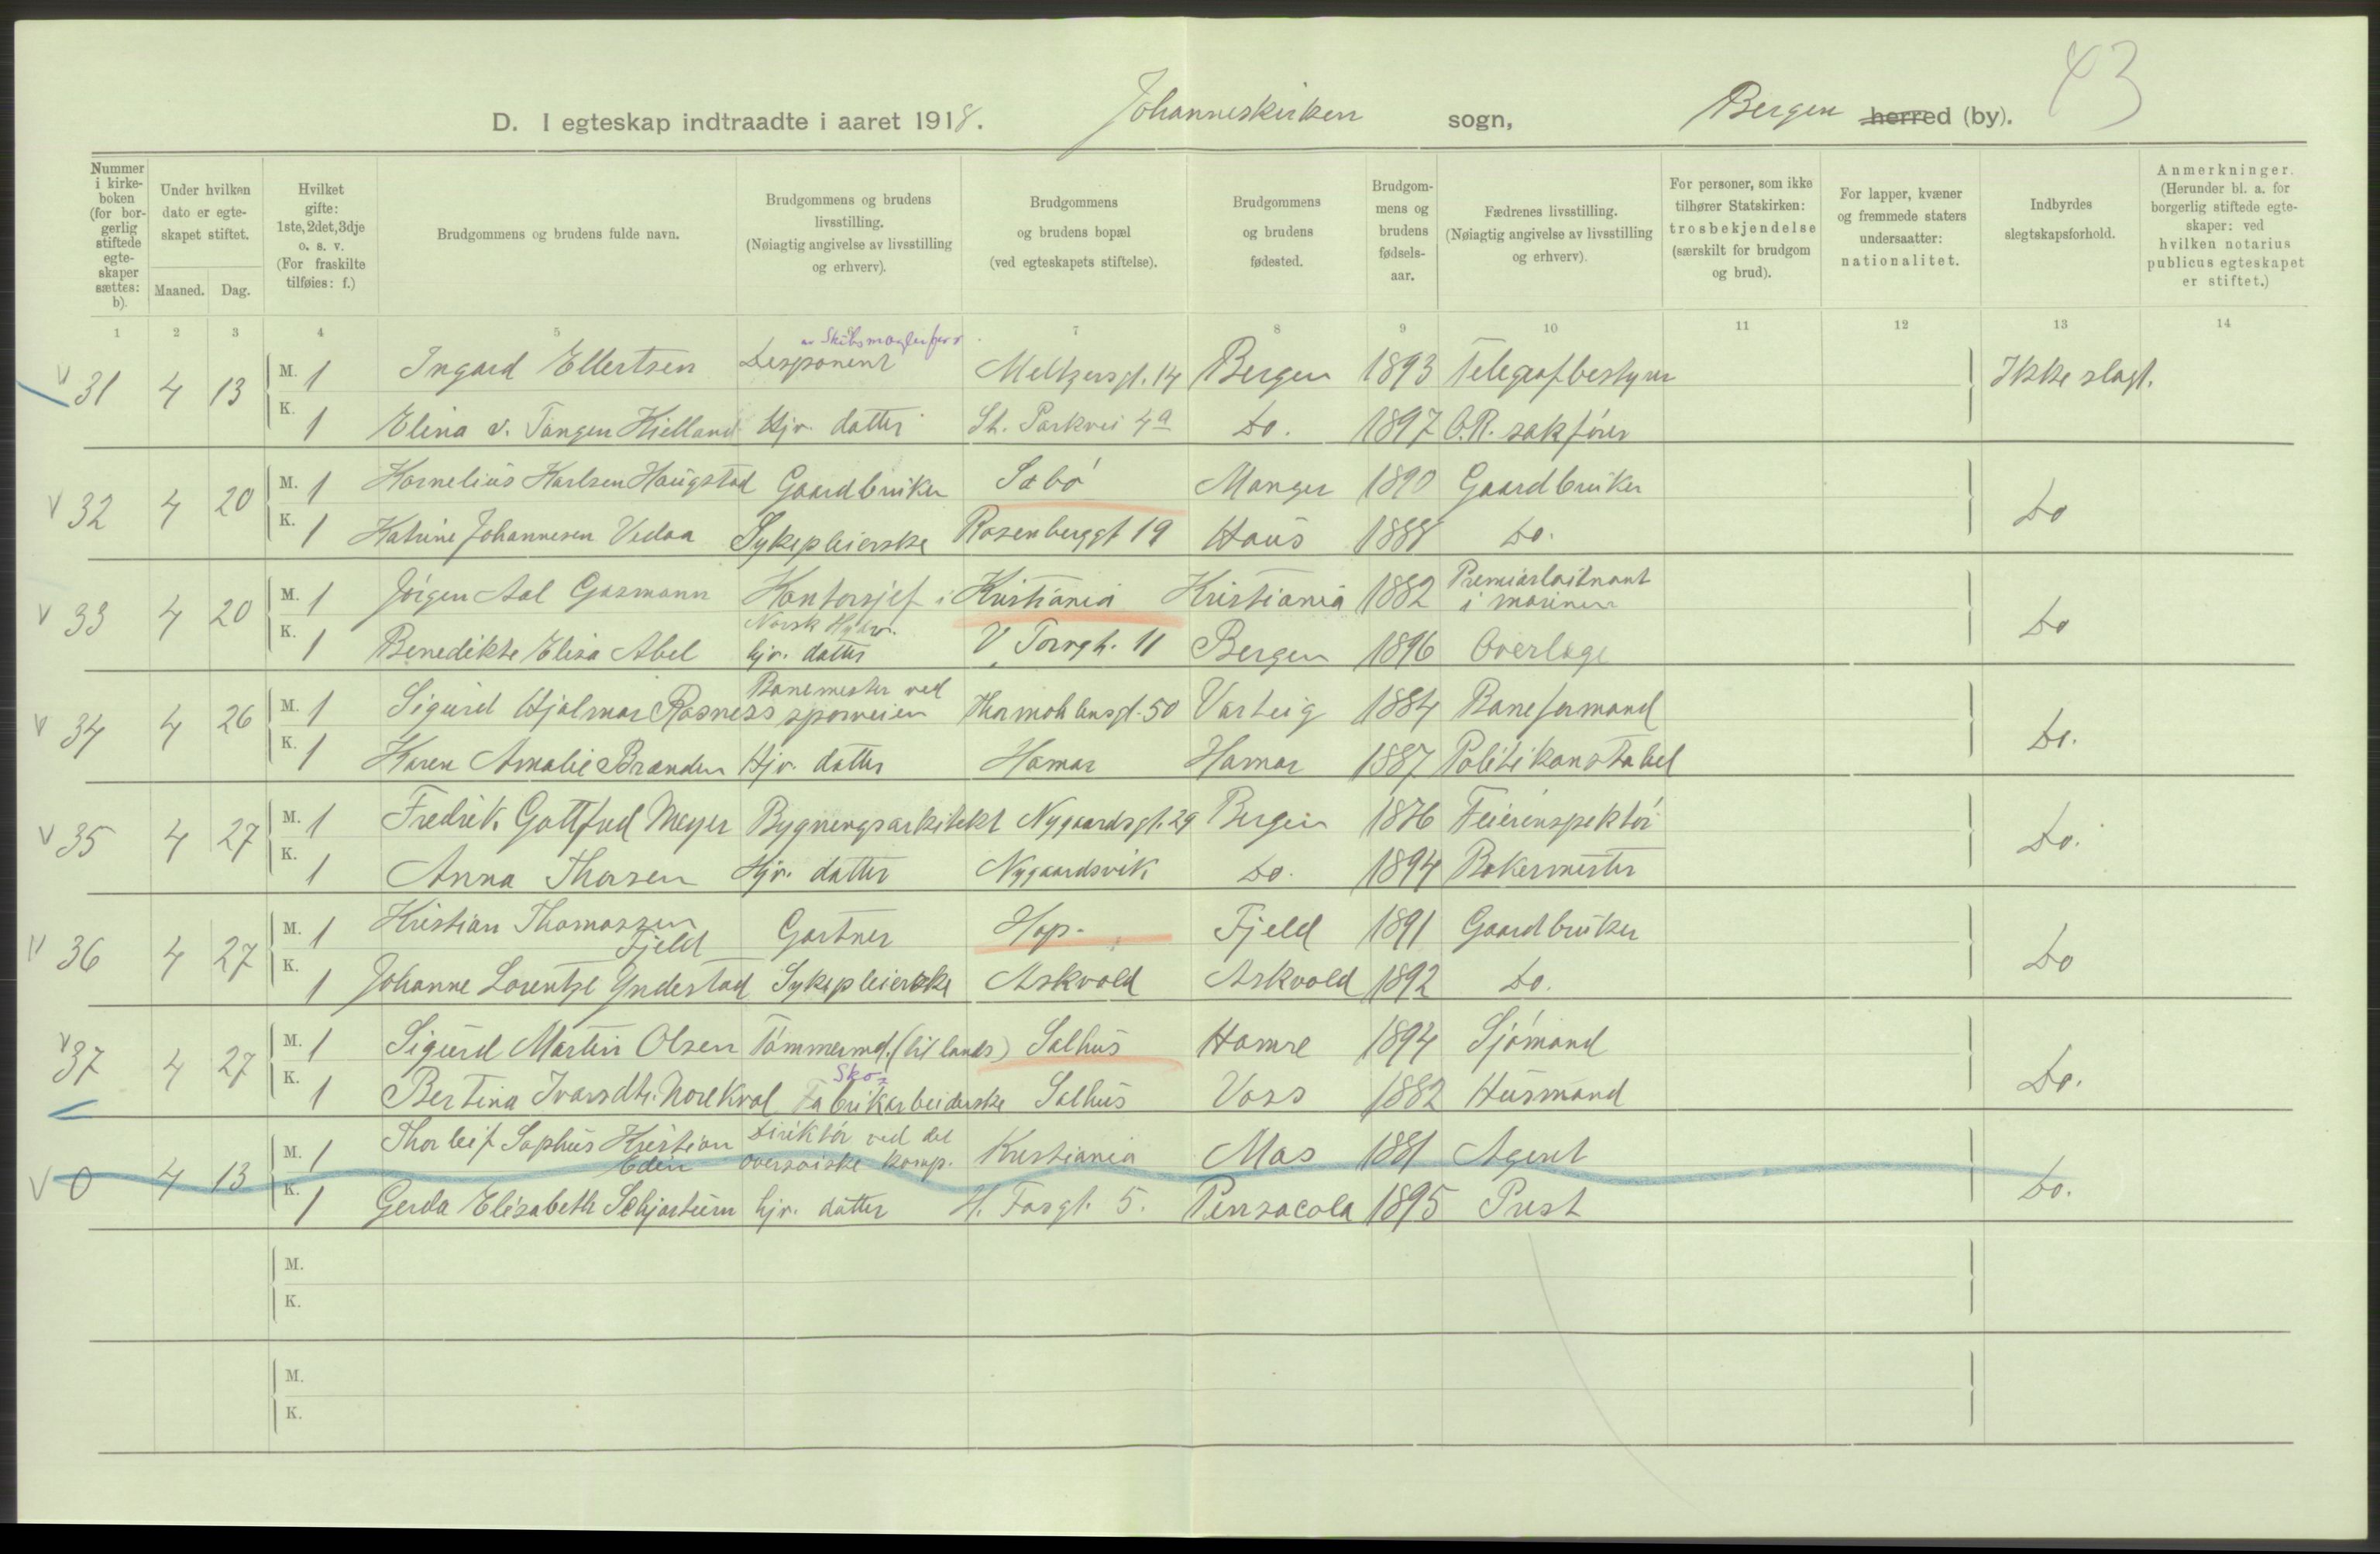 43
D. I egteskap indtraadte i aaret 1918. Johanneskirken sogn, Bergen herred (by).
Nummer i kirkeboken (for borgerlig stiftede egteskaper sættes: b).
Under hvilken dato er egteskapet stiftet.
Maaned. Dag.
Hvilket gifte: 1ste, 2det, 3dje o. s. v. (For fraskilte tilføies: f.)
Brudgommens og brudens fulde navn.
Brudgommens og brudens livsstilling. (Nøiagtig angivelse av livsstilling og erhverv).
Brudgommens og brudens bopæl (ved egteskapets stiftelse).
Brudgommens og brudens fødested.
Brudgommens og brudens fødselsaar.
Fædrenes livsstilling. (Nøiagtig angivelse av livsstilling og erhverv).
For personer, som ikke tilhører Statskirken: trosbekjendelse (særskilt for brudgom og brud).
For lapper, kvæner og fremmede staters undersaatter: nationalitet.
Indbyrdes slegtskapsforhold.
Anmerkninger. (Herunder bl. a. for borgerlig stiftede egteskaper: ved hvilken notarius publicus egteskapet er stiftet.)
1 2 3 4 5 7 8 9 10 11 12 13 14
31 4 13 M. 1 Ingard Ellertsen Disponent Meltzersgt. 14 Bergen 1893 Telegrafbestyrer Ikke slagt.
K. 1 Elina v. Tangen Kielland Hjv. datter St. Parkvei 4a Do. 1897 O.R. sakfører
32 4 20 M. 1 Kornelius Karlsen Haugstad Gaardbruker Sæbø Manger 1890 Gaardbruker Do
K. 1 Katrine Johannesen Vedaa Sykepleierske Rosenberggt 19 Haus 1888 Do.
33 4 20 M. 1 Jørgen Aal Gasmann Kontorsjef i Norsk Hydro. Kristiania Kristiania 1882 Premiærløitnant i marinen Do
K. 1 Benedikte Elisa Abel hjv. datter V. Torvgt. 11 Bergen 1896 Overlæge
34 4 26 M. 1 Sigurd Hjalmar Rosness Banemester ved sporveien Thormøhlensgt. 50 Varteig 1884 Baneformand Do.
K. 1 Karen Amalie Brænden Hjv. datter Hamar Hamar 1887 Politikonstabel
35 4 27 M. 1 Fredrik Gottfred Meyer Bygningsarkitekt Nygaardsgt. 29 Bergen 1876 Feierinspektør Do.
K. 1 Anna Thorsen Hjv. datter Nygaardsvik Do. 1894 Bakermester
36 4 27 M. 1 Kristian Thomassen Fjeld Gartner Hop. Fjeld 1891 Gaardbruker Do
K. 1 Johanne Lorentze Yndestad Sykepleierske Askvold Askvold 1892 Do.
37 4 27 M. 1 Sigurd Martin Olsen Tømmermd. (til lands) Salhus Hamre 1894 Sjømand Do.
K. 1 Bertina Ivarsdtr. Norekval Sko= Fabrikarbeiderske Salhus Voss 1882 Husmand
0 4 13 M. 1 Thorleif Sophus Kristian Eden Direktør ved det oversøiske komp. Kristiania Mos 1881 Agent Do.
K. 1 Gerda Elisabeth Schjørtum hjv. datter H. Fosgt. 5. Pensacola 1895 Prest
M.
K.
M.
K.